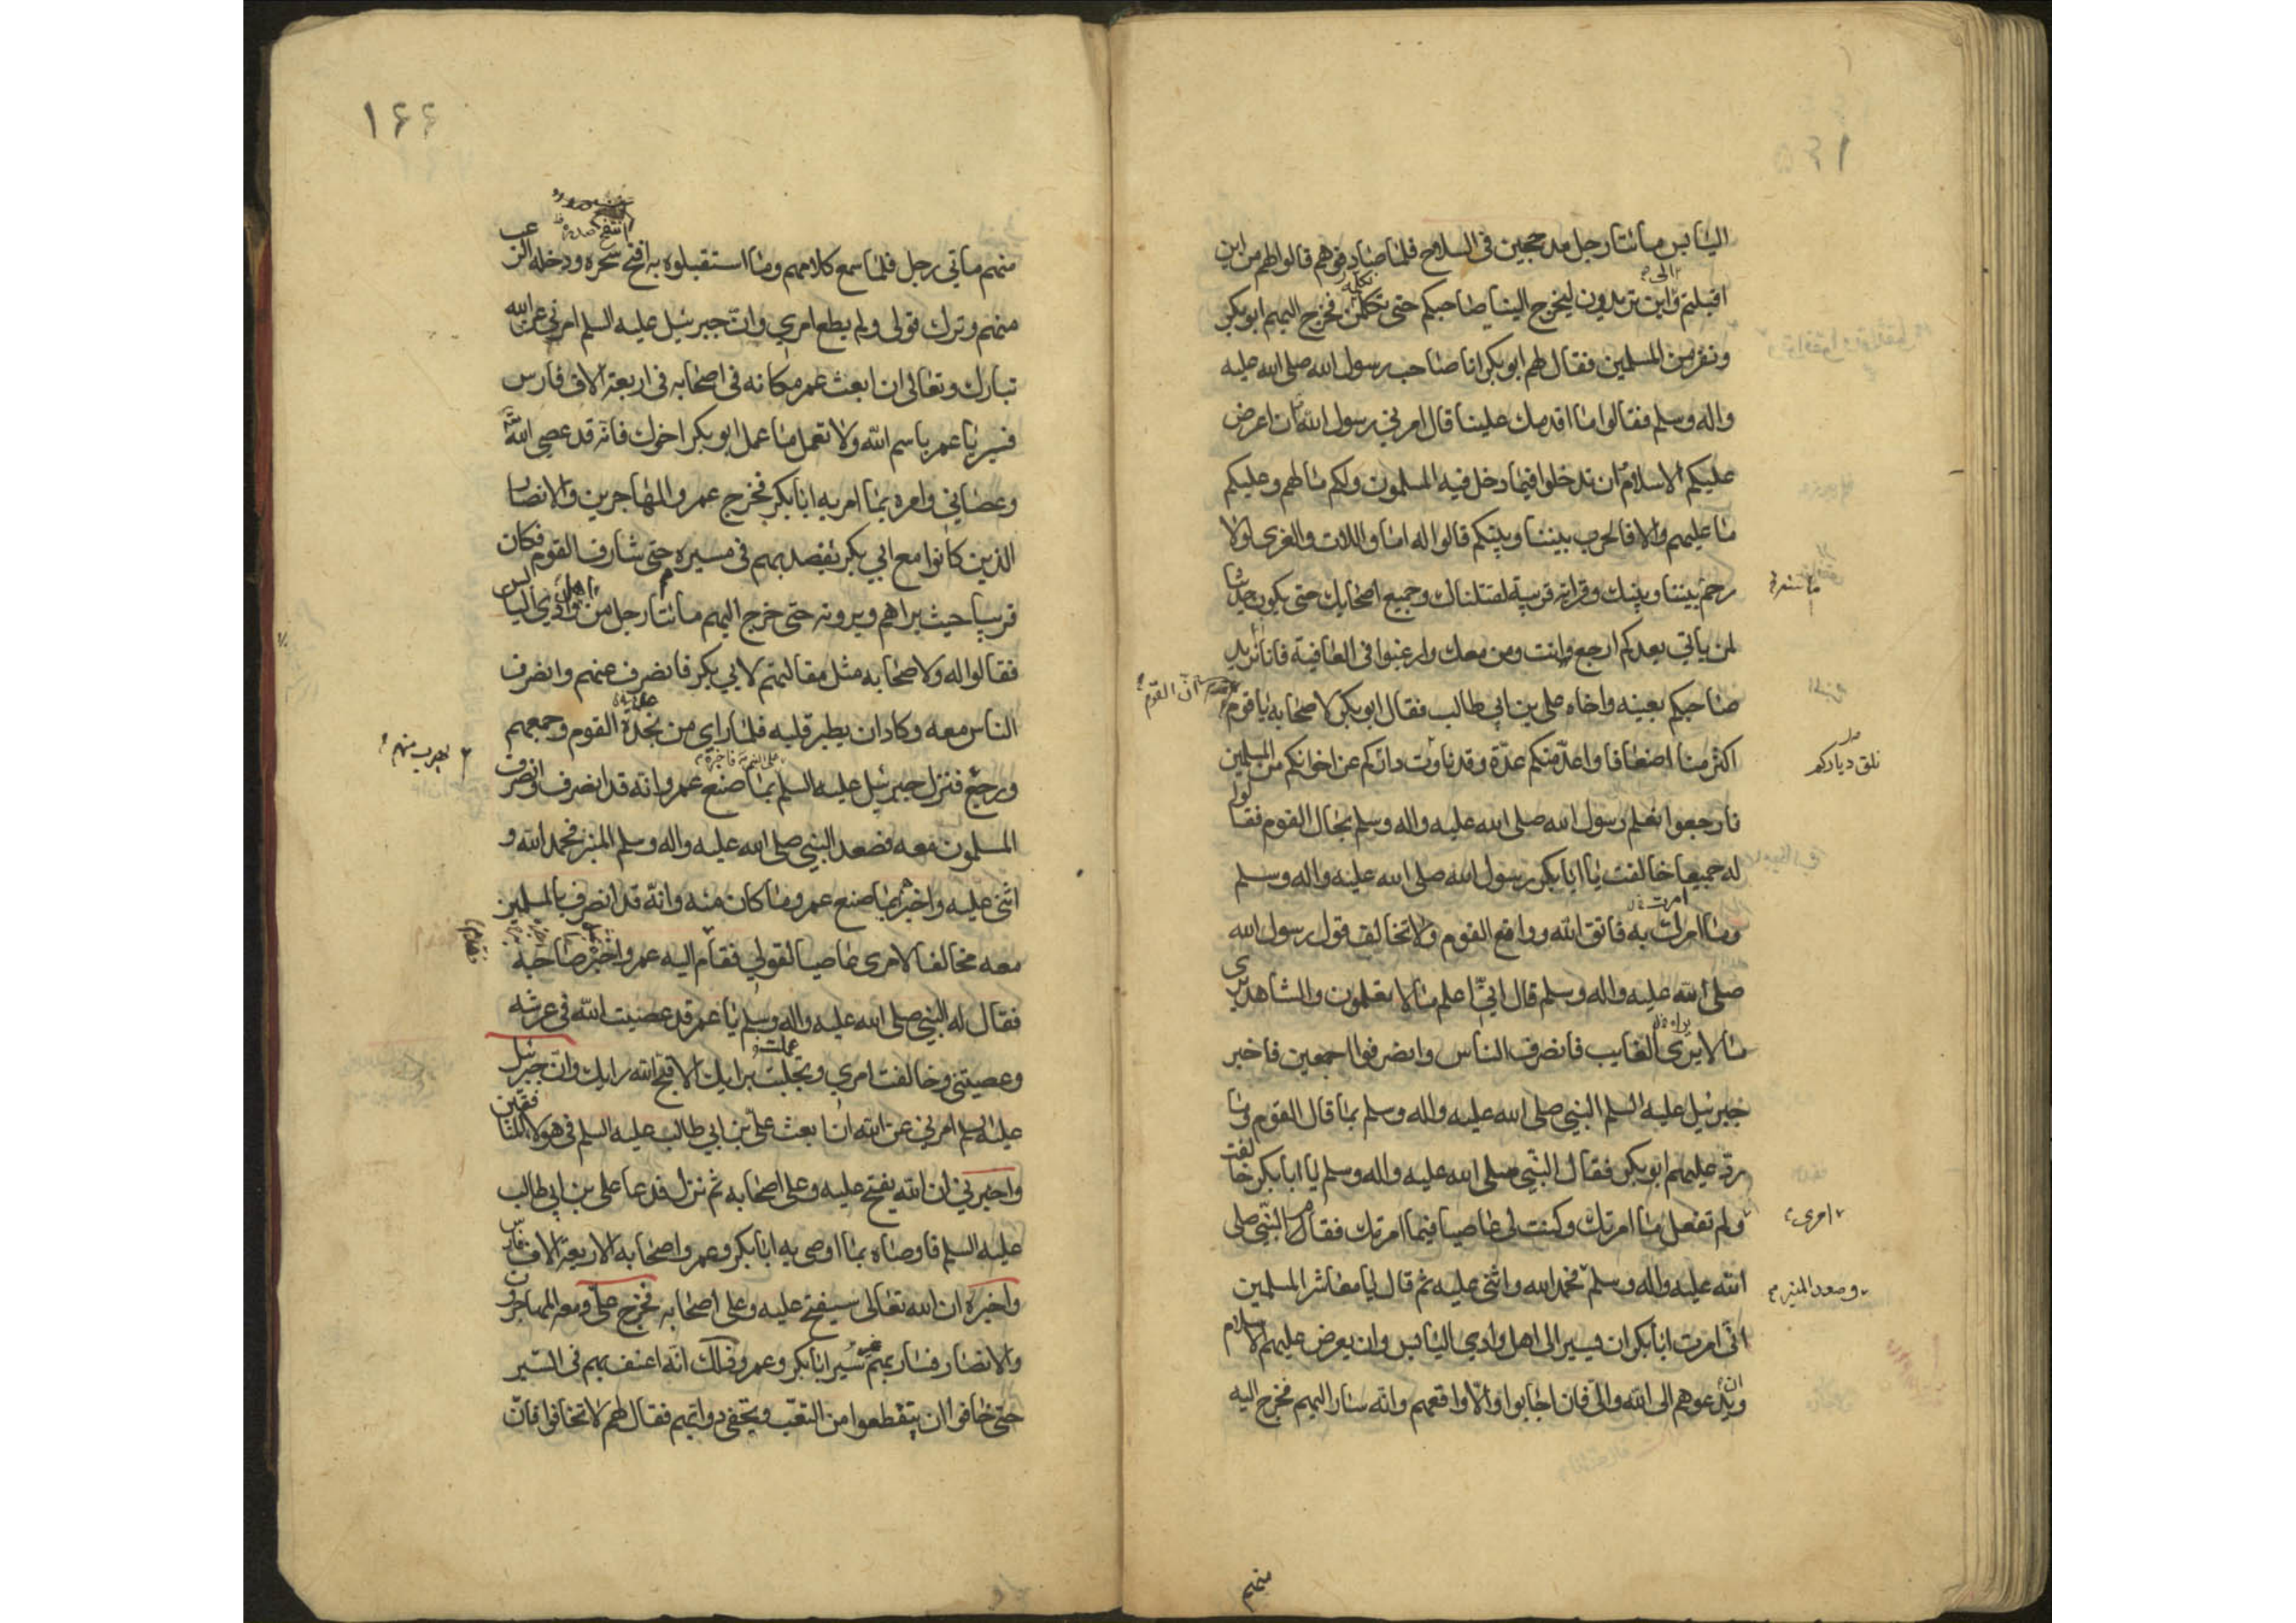 اليابس مائتا رجل مدججين فى السلاح فلما صادفوهم قالوا لهم من اين
الى
اقبلتم واين تريدون ليخرج الينا صاحبكم حتى نكلمه فخرج اليهم ابو بكر
ونفر من المسلمين فقال لهم ابو بكر انا صاحب رسول الله صلى الله عليه
واله وسلم فقالوا ما اقدمك علينا قال امرني رسول الله ان اعرض
عليكم الاسلام ان تدخلوا فيما دخل فيه المسلمون ولكم ما لهم وعليكم
ما عليهم والا فالحرب بيننا وبينكم قالوا له اما واللات والعزى لولا
رحم بيننا وبينك وقرابة قريبة لقتلناك وجميع اصحابك حتى يكون حديثا
لمن ياتي بعدكم ارجع وانت ومن معك وارغبوا فى العافية فانا نريد
صاحبكم بعينه واخاه على بن ابي طالب فقال ابو بكر لاصحابه يا قوم
ان القوم
اكثر منا اضعافا واعد منكم عدة وقد ناءت داركم عن اخوانكم من المسلمين
فارجعوا نعلم رسول الله صلى الله عليه واله وسلم بحال القوم فقالوا
له جميعا خالفت يا ابا بكر رسول الله صلى الله عليه واله وسلم
امرت
وما امرك به فاتق الله وواقع القوم ولا تخالف قول رسول الله
صلى الله عليه واله وسلم قال انى اعلم ما لا تعلمون والشاهد يرى
ما لا يرى الغايب فانصرف الناس وانصرفوا اجمعين فاخبر
جبرئيل عليه السلم النبي صلى الله عليه واله وسلم بما قال القوم وما
رد عليهم ابو بكر فقال النبي صلى الله عليه واله وسلم يا ابا بكر خالفت
امرى
ولم تفعل ما امرتك وكنت لى عاصيا فيما امرتك فقام النبي صلى
وصعد المنبر
الله عليه واله وسلم فحمد الله واثنى عليه ثم قال يا معاشر المسلمين
انى امرت ابا بكر ان يسير الى اهل وادي اليابس وان يعرض عليهم الاسلام
ويدعوهم الى الله والى فان اجابوا والا واقعهم وانه سار اليهم فخرج اليه
منهم
١٦٦
انتفخ صدره
منهم مأتي رجل فلما سمع كلامهم وما استقبلوه به افتح سحره ودخله الرعب
منهم وترك قولى ولم يطع امري وان جبرئيل عليه السلم امرني عن الله
تبارك وتعالى ان ابعث عمر مكانه فى اصحابه فى اربعة الاف فارس
فسر يا عمر باسم الله ولا تعمل ما عمل ابو بكر اخوك فانه قد عصى الله
وعصاني وامره بما امر به ابا بكر فخرج عمر والمهاجرين والانصار
الذين كانوا مع ابي بكر يقصد بهم فى مسيره حتى شارف القوم فكان
اهل
قريبا حيث يراهم ويرونه حتى خرج اليهم مائتا رجل من وادي اليابس
فقالوا له ولاصحابه مثل مقالتهم لابي بكر فانصرف عنهم وانصرف
الناس معه وكاد ان يطير قلبه فلما راي من نجدة القوم وجمعهم
يهرب منهم
ورجع فنزل جبرئيل عليه السلم بما صنع عمر وانه قد انصرف وانصرف
المسلمون معه فصعد النبي صلى الله عليه واله وسلم المنبر فحمد الله و
اثنى عليه واخبر بما صنع عمر وما كان منه وانه قد انصرف بالمسلمين
معه مخالفا لامرى عاصيا لقولي فقام اليه عمر واخبره صاحبه
فقال له النبي صلى الله عليه واله وسلم يا عمر قد عصيت الله فى عرشه
عملت
وعصيتنى وخالفت امري وتجلبت برايك الا قبح الله رايك وان جبرئيل
عليه السلم امرني عن الله ان ابعث على بن ابي طالب عليه السلم فى هولا المنافقين
واخبرني ان الله يفتح عليه وعلى اصحابه ثم نزل فدعا على بن ابي طالب
عليه السلم فاوصاه بما اوصى به ابا بكر وعمر واصحابه الاربعة الاف فارس
واخبره ان الله تعالى سيفتح عليه وعلى اصحابه فخرج على ومعه المهاجرون
والانصار فسار بهم غير سير ابا بكر وعمر وذلك انه اعنف بهم فى السير
حتى خافوا ان يتقطعوا من التعب وتحفى دوابهم فقال لهم لا تخافوا فان